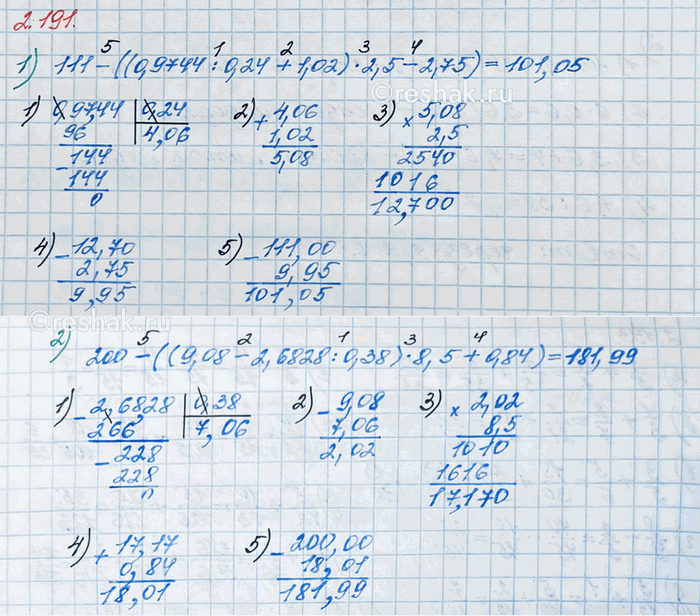 2.191.
1) 111 - ((0,9744 : 0,24 + 1,02) · 2,5 - 2,75) = 101,05
5 1 2 3 4
1) 0,9744 | 0,24
96 4,06
- 144
144
0
2) + 4,06
1,02
5,08
3) × 5,08
2,5
2540
1016
12,700
4) - 12,70
2,75
9,95
5) - 111,00
9,95
101,05
© reshak.ru
2) 200 - ((9,08 - 2,6828 : 0,38) · 8,5 + 0,84) = 181,99
5 2 1 3 4
1) - 2,6828 | 0,38
266 7,06
- 228
228
0
2) - 9,08
7,06
2,02
3) × 2,02
8,5
1010
1616
17,170
4) + 17,17
0,84
18,01
5) - 200,00
18,01
181,99